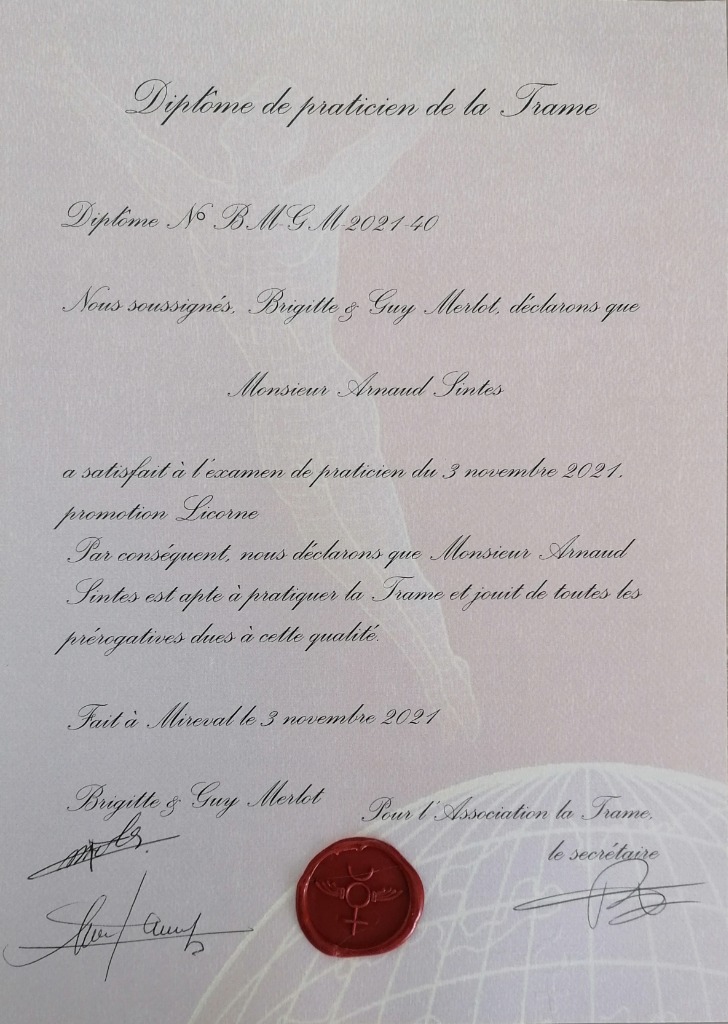 Diplôme de praticien de la Trame
Diplôme Nº BMGM-2021-40
Nous soussignés, Brigitte & Guy Merlot, déclarons que
Monsieur Arnaud Sintes
a satisfait à l'examen de praticien du 3 novembre 2021,
promotion Licorne
Par conséquent, nous déclarons que Monsieur Arnaud
Sintes est apte à pratiquer la Trame et jouit de toutes les
prérogatives dues à cette qualité.
Fait à Mireval le 3 novembre 2021
Brigitte & Guy Merlot
Pour l'Association la Trame,
le secrétaire